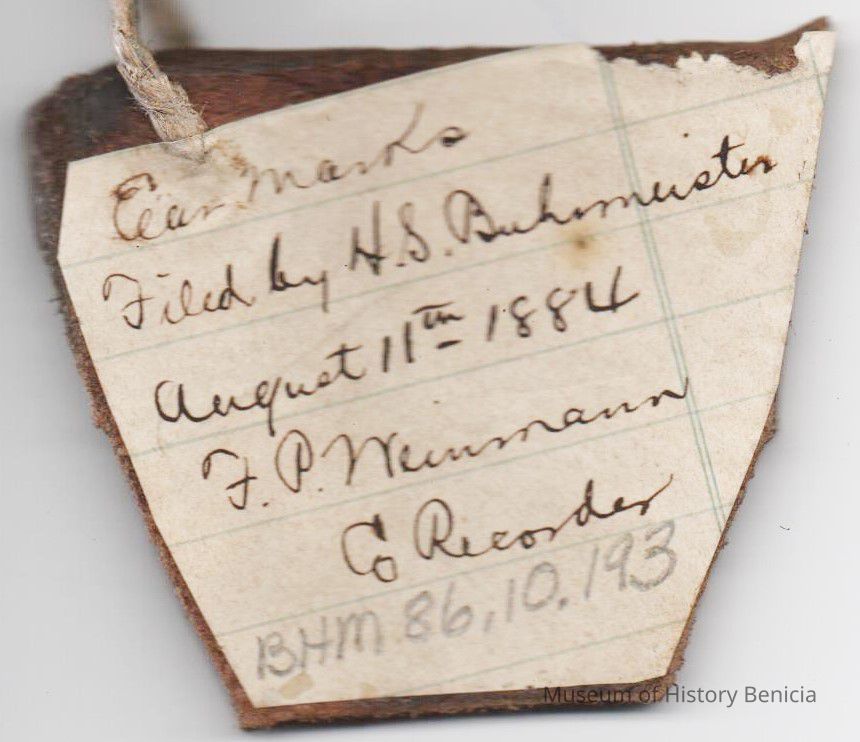 Ear Marks
Filed by H.S. Buhrmeister
August 11th 1884
F. P. Weinmann
Co Recorder
BHM 86.10.193
Museum of History Benicia